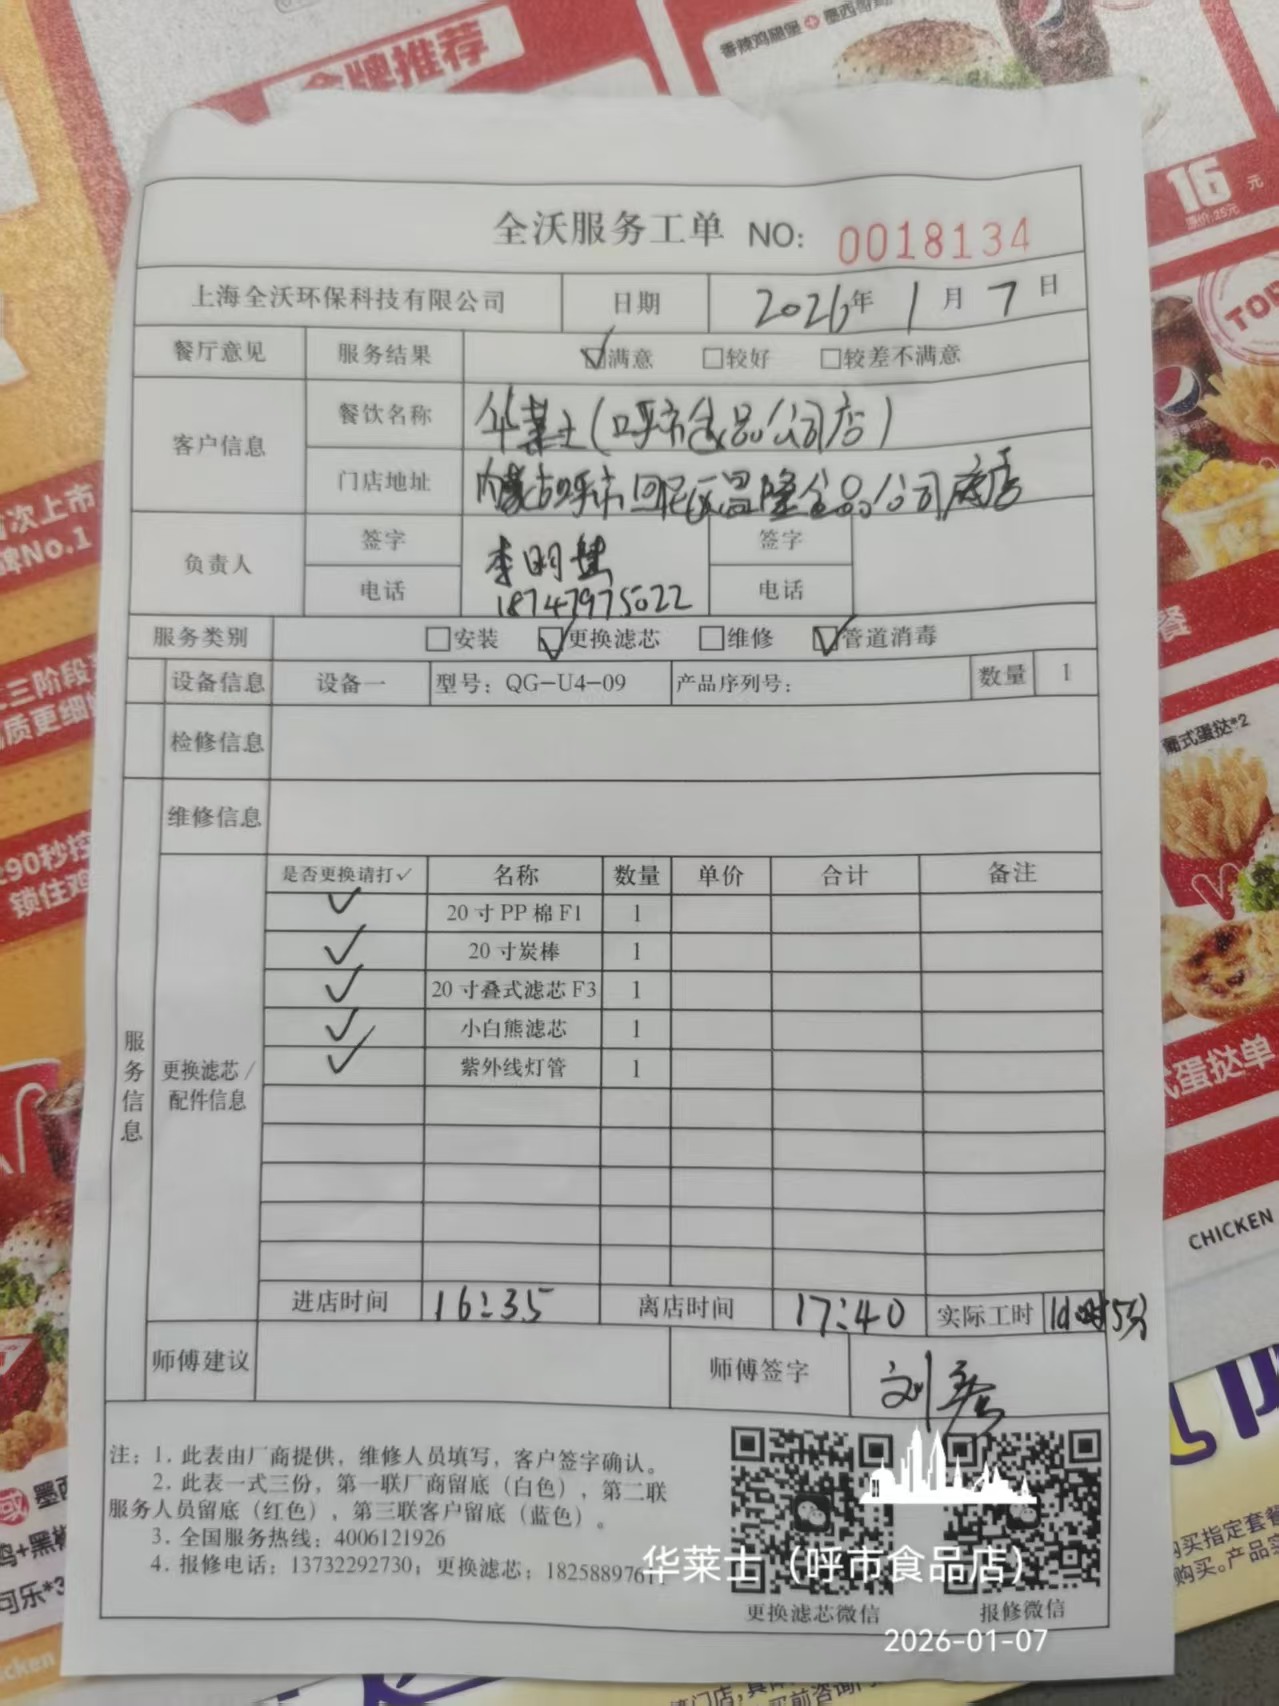 金牌推荐
香辣鸡腿堡+墨西哥
16元
原价:25元
TOP
首次上市
牌No.1
三阶段
质更细
90秒
锁住鸡
葡式蛋挞*2
式蛋挞单
CHICKEN
全沃服务工单 NO: 0018134
上海全沃环保科技有限公司 日期 2026年 1月 7日
餐厅意见 服务结果 ☑满意 □较好 □较差不满意
客户信息 餐饮名称 华莱士(呼市食品公司店)
门店地址 内蒙古呼市回民区温隆食品公司店
负责人 签字 李明 签字
电话 18747975022 电话
服务类别 □安装 ☑更换滤芯 □维修 ☑管道消毒
设备信息 设备一 型号：QG-U4-09 产品序列号： 数量 1
检修信息
维修信息
服务信息
更换滤芯/配件信息
是否更换请打✓ 名称 数量 单价 合计 备注
✓ 20寸PP棉F1 1
✓ 20寸炭棒 1
✓ 20寸叠式滤芯F3 1
✓ 小白熊滤芯 1
✓ 紫外线灯管 1
进店时间 16:35 离店时间 17:40 实际工时 1小时5分
师傅建议 师傅签字 刘
注：1. 此表由厂商提供，维修人员填写，客户签字确认。
2. 此表一式三份，第一联厂商留底（白色），第二联
服务人员留底（红色），第三联客户留底（蓝色）。
3. 全国服务热线：4006121926
4. 报修电话：13732292730；更换滤芯：18258897611
更换滤芯微信 报修微信
华莱士（呼市食品店）
2026-01-07